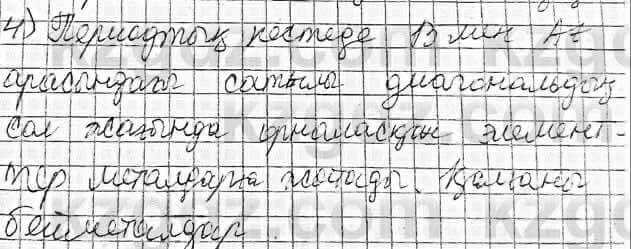 4) Периодтық кестеде B мен At
арасындағы сатылы диагональдың
сол жағында орналасқан элемент-
тер металдарға жатады. Қалғаны
бейметалдар.